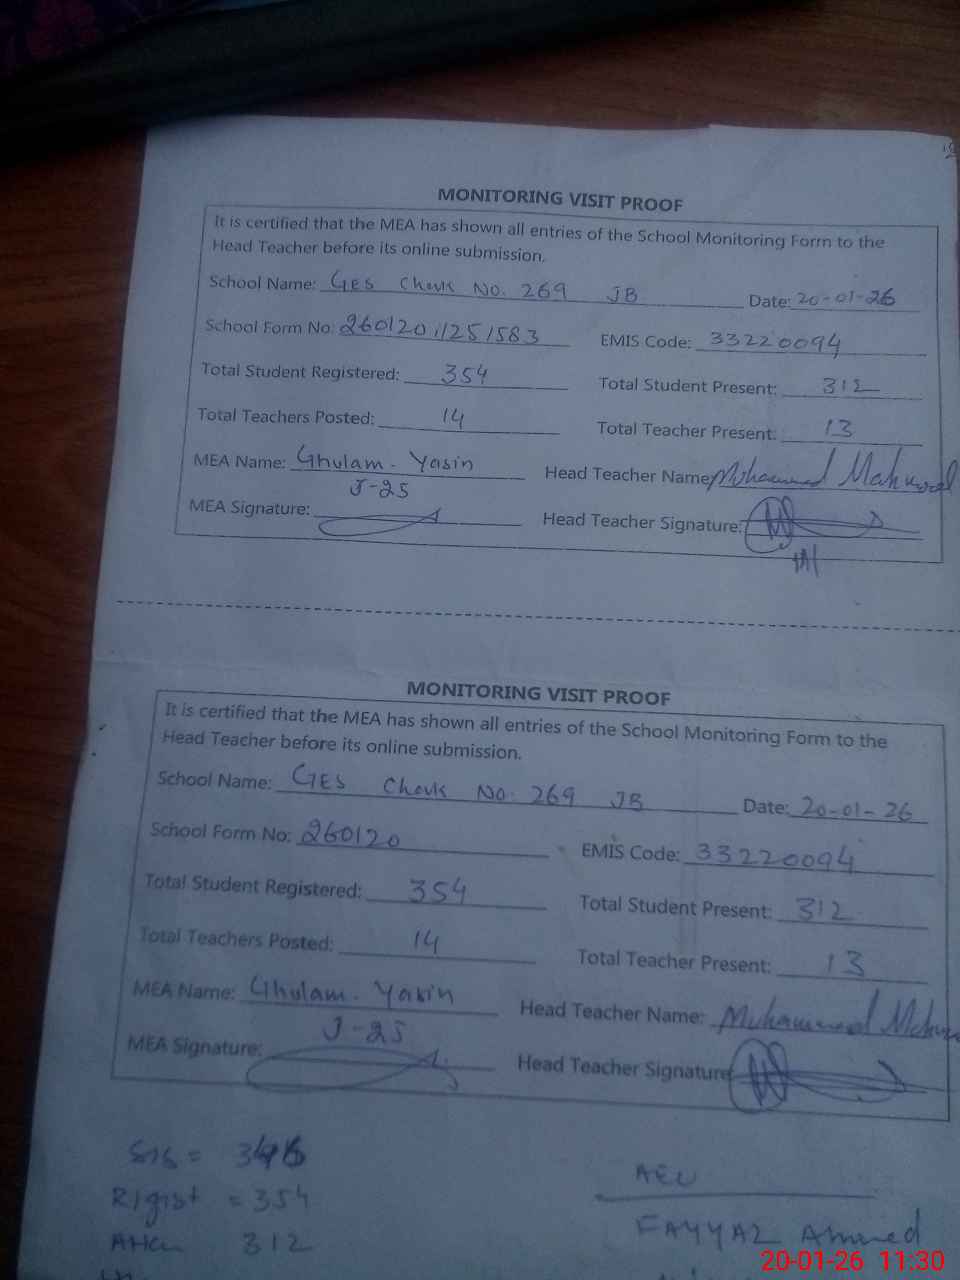 MONITORING VISIT PROOF
It is certified that the MEA has shown all entries of the School Monitoring Form to the
Head Teacher before its online submission.
School Name: GES Chak No. 269 JB Date: 20-01-26
School Form No: 260120 EMIS Code: 33220094
Total Student Registered: 354 Total Student Present: 312
Total Teachers Posted: 14 Total Teacher Present: 13
MEA Name: Ghulam. Yasin Head Teacher Name: Muhammad
J-25
MEA Signature: Head Teacher Signature:
MONITORING VISIT PROOF
It is certified that the MEA has shown all entries of the School Monitoring Form to the
Head Teacher before its online submission.
School Name: GES Chak No. 269 JB Date: 20-01-26
School Form No: 260120 EMIS Code: 33220094
Total Student Registered: 354 Total Student Present: 312
Total Teachers Posted: 14 Total Teacher Present: 13
MEA Name: Ghulam. Yasin Head Teacher Name: Muhammad
J-25
MEA Signature: Head Teacher Signature
SIS =
Rigist = 354
312
FAYYAZ Ahmed
20-01-26 11:30